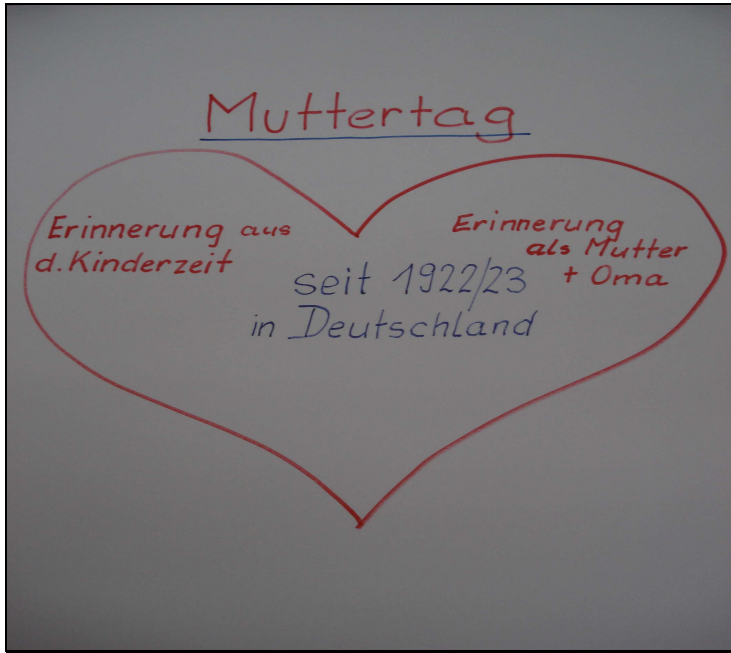 Muttertag
Erinnerung aus
d. Kinderzeit
Erinnerung
als Mutter
+ Oma
seit 1922/23
in Deutschland